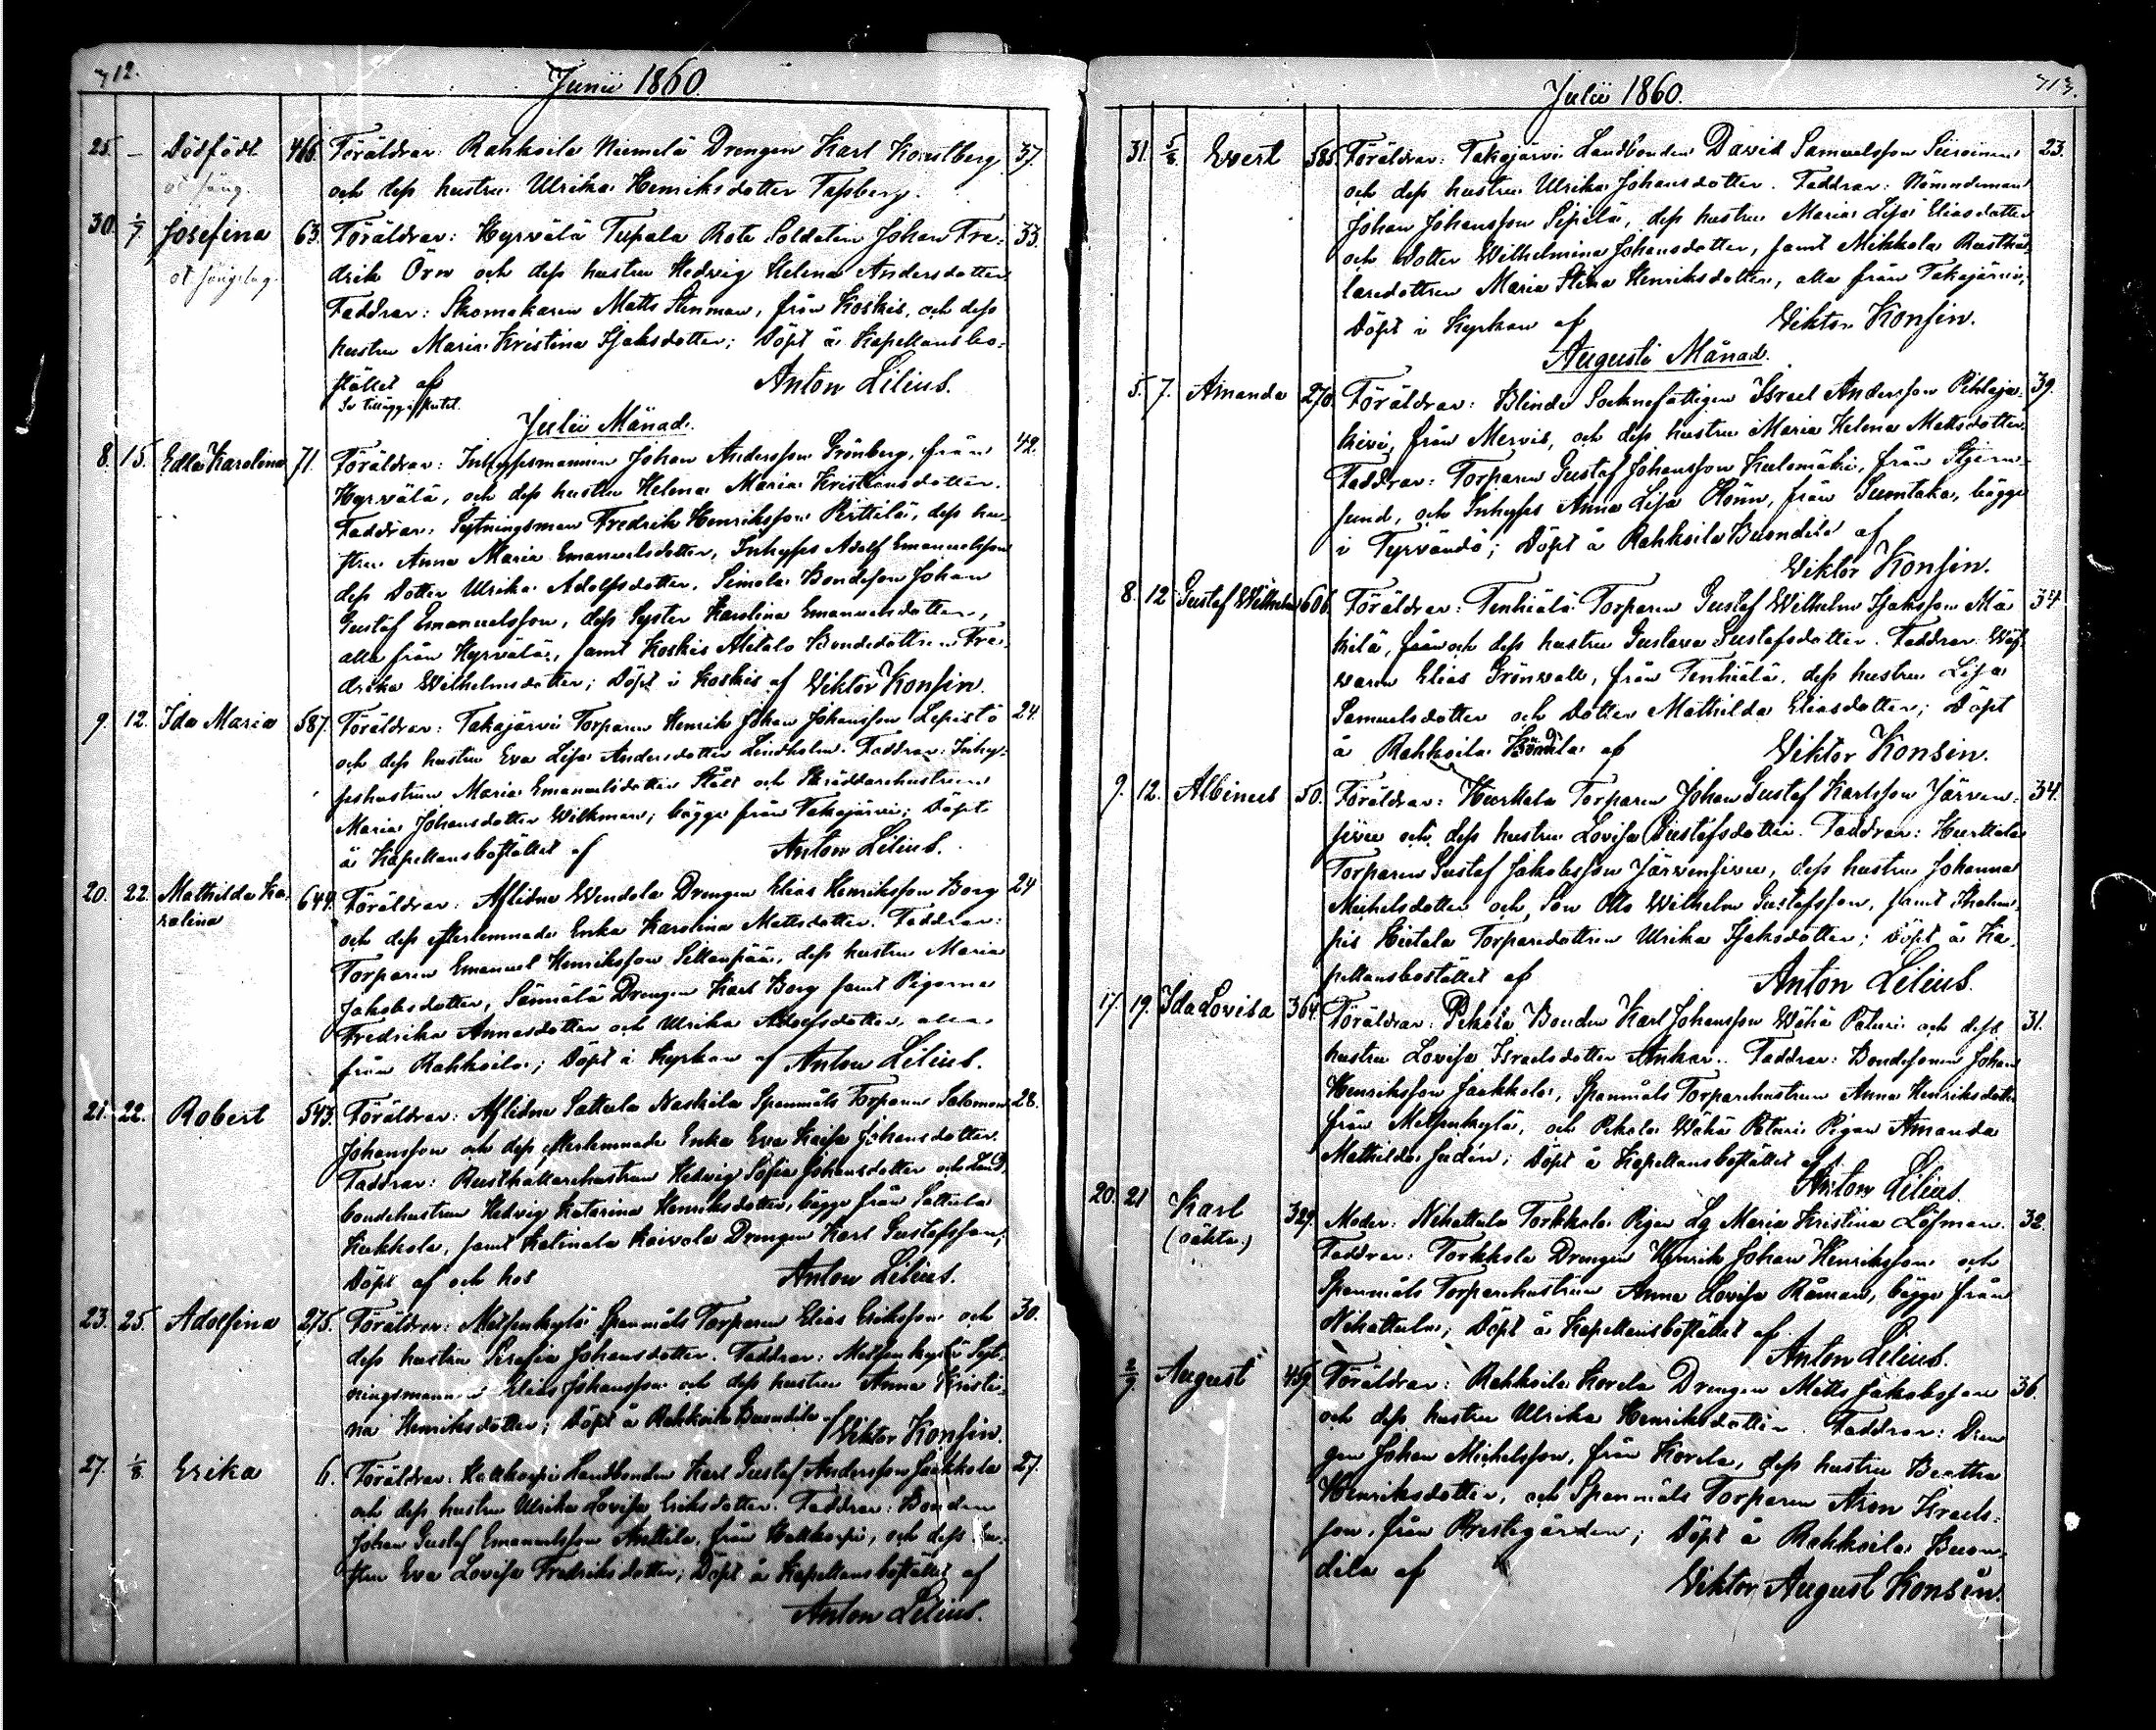 712.
Junii 1860.
25. — Dödfödt 466. Föräldrar: Rahkoila Niemelä Drengen Karl Konstberg 37.
och dess hustru Ulrika Henriksdotter Tapsberg.
30. 1/7 Josefina 63. Föräldrar: Hyrvälä Tupala Rote Soldaten Johan Fre- 33.
drik Örn och dess hustru Hedvig Helena Andersdotter.
Faddrar: Skomakaren Matts Stenman, från Koskis, och dess
hustru Maria Kristina Isaksdotter; Döpt å Kapellansbo-
stället af Anton Lilius.
Se tilläggsslutet.
Julii Månad.
8. 15. Edla Karolina 71. Föräldrar: Inhysesmannen Johan Andersson Grönberg, från 42.
Hyrvälä, och dess hustru Helena Maria Kristiansdotter.
Faddrar: Sytningsman Fredrik Henriksson Pirttilä, dess hu-
stru Anna Maria Emanuelsdotter, Inhyses Adolf Emanuelsson
dess Dotter Ulrika Adolfsdotter, Simola Bondeson Johan
Gustaf Emanuelsson, dess Syster Karolina Emanuelsdotter,
alla från Hyrvälä, samt Koskis Alitalo Bondedottren Fre-
drika Wilhelmsdotter; Döpt i Koskis af Viktor Konsin.
9. 12. Ida Maria 587. Föräldrar: Takajärvi Torparen Henrik Johan Johansson Lepistö 24.
och dess hustru Eva Lisa Andersdotter Lindholm. Faddrar: Inhy-
seshustrun Maria Emanuelsdotter Stålt och Skräddarehustrun
Maria Johansdotter Wilkman, bägge från Takajärvi; Döpt
å Kapellansbostället af Anton Lilius.
20. 22. Mathilda Ka- 644. Föräldrar: Aflidne Wendola Drengen Elias Henriksson Borg 24
rolina och dess efterlemnade Enka Karolina Mattsdotter. Faddrar:
Torparen Emanuel Henriksson Sillanpää, dess hustru Maria
Jakobsdotter, Sännälä Drengen Karl Borg samt Pigorna
Fredrika Annasdotter och Ulrika Adolfsdotter, alla
från Rahkoila; Döpt i Kyrkan af Anton Lilius.
21. 22. Robert 543. Föräldrar: Aflidne Sattula Naskila Spanmåls Torparen Salomon 28.
Johansson och dess efterlemnade Enka Eva Kaisa Johansdotter.
Faddrar: Rusthållarehustrun Hedvig Sofia Johansdotter och Land-
bondehustrun Hedvig Katarina Henriksdotter, bägge från Sattula
Kukkola, samt Katinala Kaivola Drengen Karl Gustafsson;
Döpt af och hos Anton Lilius.
23. 25. Adolfina 275. Föräldrar: Metsenkylä Spanmåls Torparen Elias Eriksson och 30.
dess hustru Serafia Johansdotter. Faddrar: Metsenkylä Syt-
ningsmannen Elias Johansson och dess hustru Anna Kristi-
na Henriksdotter; Döpt å Rahkoila Buondila af Viktor Konsin.
27. 1/8 Erika 6. Föräldrar: Kalkkorpi Landbonden Karl Gustaf Andersson Jaakkola 27.
och dess hustru Ulrika Lovisa Eriksdotter. Faddrar: Bonden
Johan Gustaf Emanuelsson Anttila, från Kalkkorpi, och dess hu-
stru Eva Lovisa Fredriksdotter; Döpt å Kapellansbostället af
Anton Lilius.
713.
Julii 1860.
31. 5/8 Evert 585. Föräldrar: Takajärvi Landbonden David Samuelsson Siiroinen 23.
och dess hustru Ulrika Johansdotter. Faddrar: Nämndeman
Johan Johansson Sipilä, dess hustru Maria Lisa Eliasdotter
och dotter Wilhelmina Johansdotter, samt Mikkola Rusthål-
laredottren Maria Stina Henriksdotter, alla från Takajärvi;
Döpt i Kyrkan af Viktor Konsin.
Augusti Månad.
5. 7. Amanda 270. Föräldrar: Blinde Socknefattigen Israel Andersson Pihlaja- 39.
kivi, från Mervis, och dess hustru Maria Helena Mattsdotter.
Faddrar: Torparen Gustaf Johansson Kulomäki, från Stjern-
sund, och Inhyses Anna Lisa Rönn, från Suontaka, bägge
i Tyrvändö; Döpt å Rahkoila Buondila af
Viktor Konsin.
8. 12 Gustaf Wilhelm 606. Föräldrar: Tenhiälä Torparen Gustaf Wilhelm Isaksson Mä- 34.
kilä, från och dess hustru Gustava Gustafsdotter. Faddrar: Wäf-
waren Elias Grönwall, från Tenhiälä, dess hustru Lisa
Samuelsdotter och Dotter Mathilda Eliasdotter; Döpt
å Rahkoila af Viktor Konsin.
9. 12. Albinus 50. Föräldrar: Hurttala Torparen Johan Gustaf Karlsson Järven- 34.
sivu och dess hustru Lovisa Gustafsdotter. Faddrar: Hurttala
Torparen Gustaf Jakobsson Järvensivu, dess hustru Johanna
Michelsdotter och Son Otto Wilhelm Gustafsson, samt Ihalem-
pis Hietala Torparedottren Ulrika Isaksdotter; Döpt å Ka-
pellansbostället af Anton Lilius.
17. 19. Ida Lovisa 364. Föräldrar: Pekola Bonden Karl Johansson Wähä Paturi och dess 31.
hustru Lovisa Israelsdotter Ankar. Faddrar: Bondesonen Johan
Henriksson Jaakkola, Spanmåls Torparehustrun Anna Henriksdotter
från Metsenkylä, och Pekola Wähä Paturi Pigan Amanda
Mathilda Judén; Döpt å Kapellansbostället af
Anton Lilius.
20. 21 Karl 329. Moder: Nihattula Torkkola Pigan Lg Maria Kristina Löfman. 32.
(oäkta.) Faddrar: Torkkola Drengen Henrik Johan Henriksson och
Spanmåls Torparehustrun Anna Lovisa Råman, bägge från
Nihattula; Döpt å Kapellansbostället af
Anton Lilius.
2/9 August 459. Föräldrar: Rahkoila Korela Drengen Matts Jakobsson 36.
och dess hustru Ulrika Henriksdotter. Faddrar: Dren-
gen Johan Michelsson, från Korela, dess hustru Beatha
Henriksdotter, och Spanmåls Torparen Aron Israels-
son, från Prestegården; Döpt å Rahkoila Buon-
dila af Viktor August Konsin.